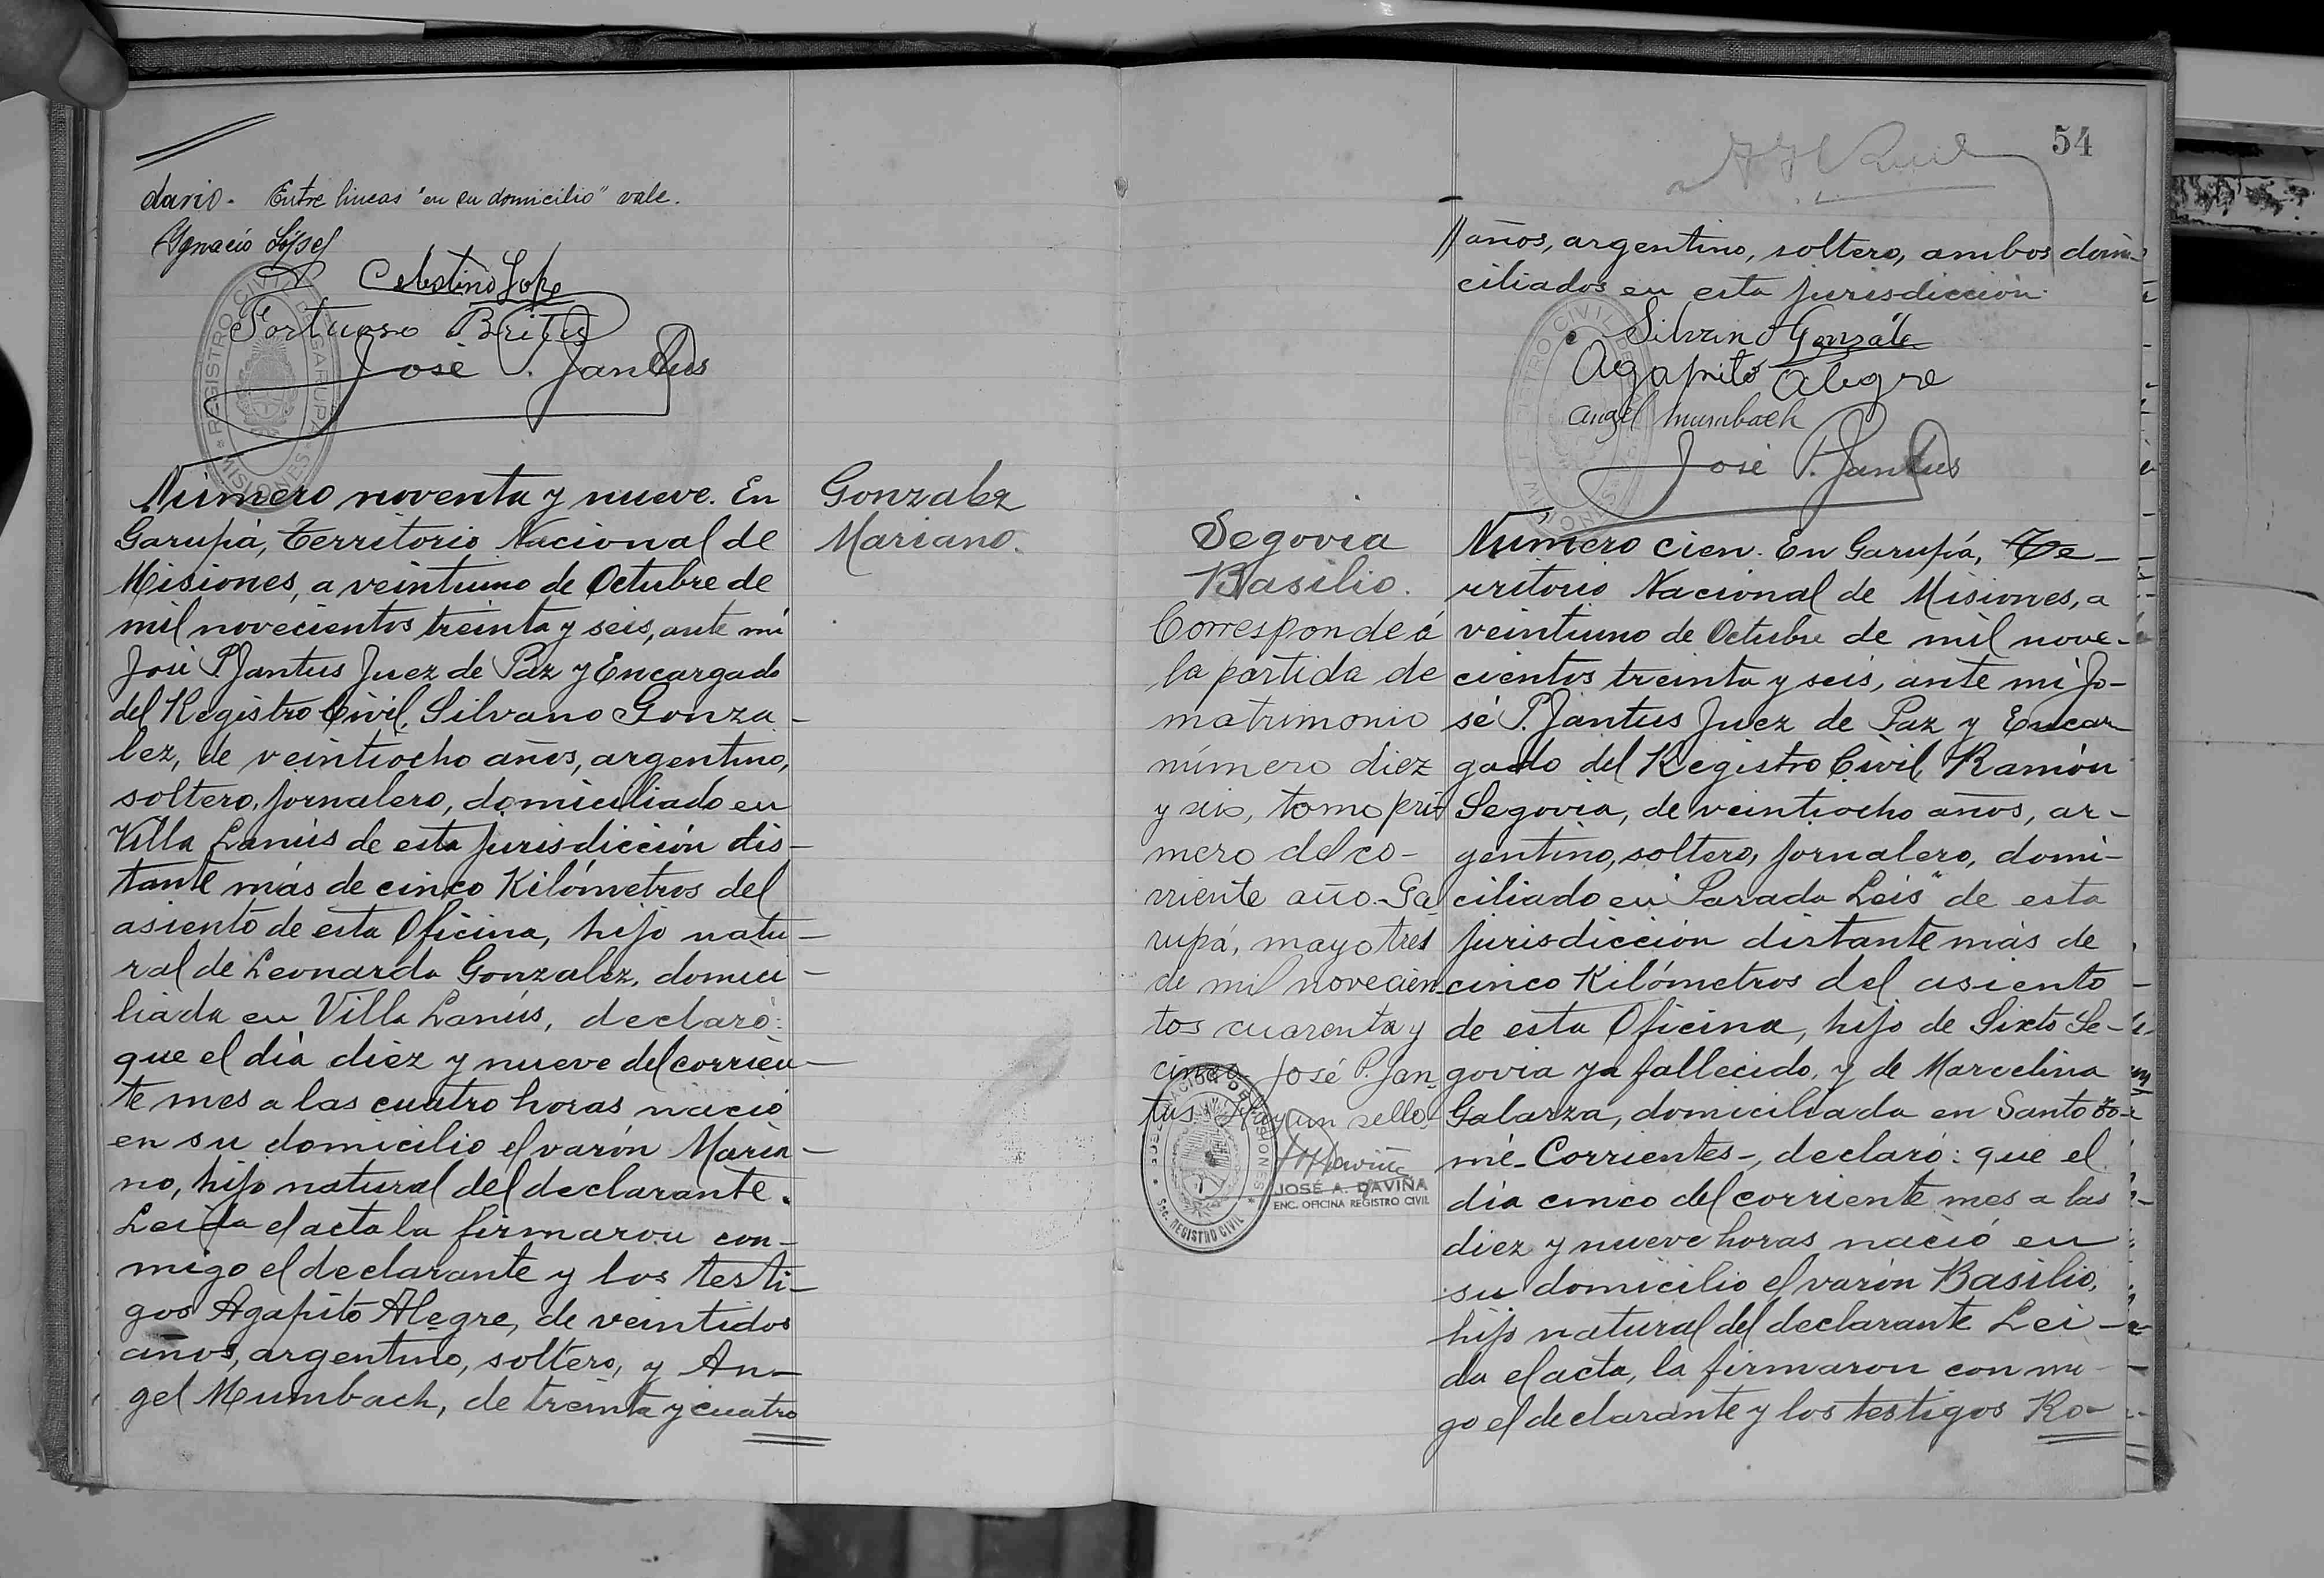 dario. Entre lineas "en su domicilio" vale.
Ygnacio Lópes
Celestino Lope
Fortunoso Brites
José P. Jantus
REGISTRO CIVIL DE GARUPA
MISIONES
Número noventa y nueve. En
Garupá, Territorio Nacional de
Misiones, a veintiuno de Octubre de
mil novecientos treinta y seis, ante mi
José P. Jantus Juez de Paz y Encargado
del Registro Civil, Silvano Gonza-
lez, de veintiocho años, argentino,
soltero, jornalero, domiciliado en
Villa Lanús de esta jurisdicción dis-
tante más de cinco Kilómetros del
asiento de esta Oficina, hijo natu-
ral de Leonarda Gonzalez, domici-
liada en Villa Lanús, declaró:
que el día diez y nueve del corrien-
te mes a las cuatro horas nació
en su domicilio el varón Maria-
no, hijo natural del declarante.
Leida el acta la firmaron con-
migo el declarante y los testi-
gos Agapito Alegre, de veintidos
años, argentino, soltero, y An-
gel Mumbach, de treinta y cuatro
Gonzalez
Mariano.
54
// años, argentino, soltero, ambos domi-
ciliados en esta jurisdicción.
Silvano Gonzále
Agapito Alegre
Angel Mumbach
José P. Jantus
Segovia
Basilio.
Corresponde á
la partida de
matrimonio
número diez
y seis, tomo pri
mero del co-
rriente año.-Ga
rupá, mayo tres
de mil novecien-
tos cuarenta y
cinco José P. Jan
tus Hay un sello
JOSÉ A. DAVIÑA
ENC. OFICINA REGISTRO CIVIL
SEC. REGISTRO CIVIL
Número cien. En Garupá, Te-
rritorio Nacional de Misiones, a
veintiuno de Octubre de mil nove-
cientos treinta y seis, ante mi Jo-
sé P. Jantus Juez de Paz y Encar
gado del Registro Civil, Ramón
Segovia, de veintiocho años, ar-
gentino, soltero, jornalero, domi-
ciliado en "Parada Leis" de esta
jurisdicción distante más de
cinco Kilómetros del asiento
de esta Oficina, hijo de Sixto Se-
govia ya fallecido, y de Marcelina
Galarza, domiciliada en Santo To-
mé-Corrientes-, declaró: que el
día cinco del corriente mes a las
diez y nueve horas nació en
su domicilio el varón Basilio,
hijo natural del declarante Lei-
da el acta, la firmaron con mi
go el declarante y los testigos Ro-